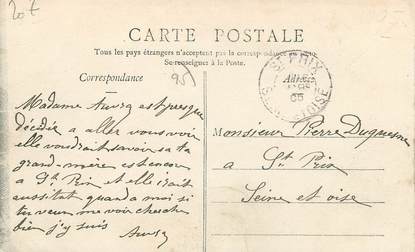 20 f
CARTE POSTALE
Tous les pays étrangers n'acceptent pas la correspondance au
Se renseigner à la Poste.
Correspondance
95)
ST PRIX
05
SEINE ET OISE
Madame Auvry est presque
décidée a aller vous voir
elle voudrait savoir si ta
grand-mère est encore
a St Prix et elle irait
aussitot quand a moi si
tu veux me voir cherche
bien j'y suis
Auvry
Monsieur Pierre Duquesne
a St Prix
Seine et oise